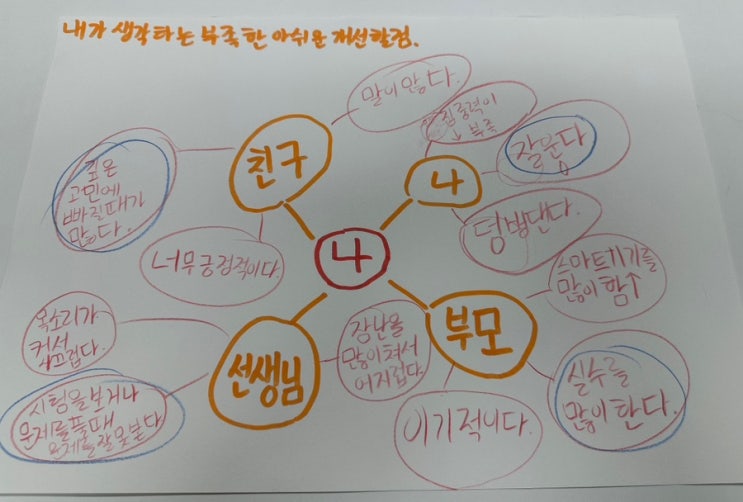 내가 생각하는 부족한 아쉬운 개선할점.
말이 많다.
집중력이
↓ 부족
친구
깊은
고민에
빠질때가
많다.
잘운다
나
덩벙댄다.
너무긍정적이다.
나
스마트기기를
많이 함↑
목소리가
커서
시끄럽다.
장난을
많이쳐서
어지럽다
부모
선생님
실수를
많이 한다.
시험을 보거나
문제를 풀때
문제를 잘못본다
이기적이다.